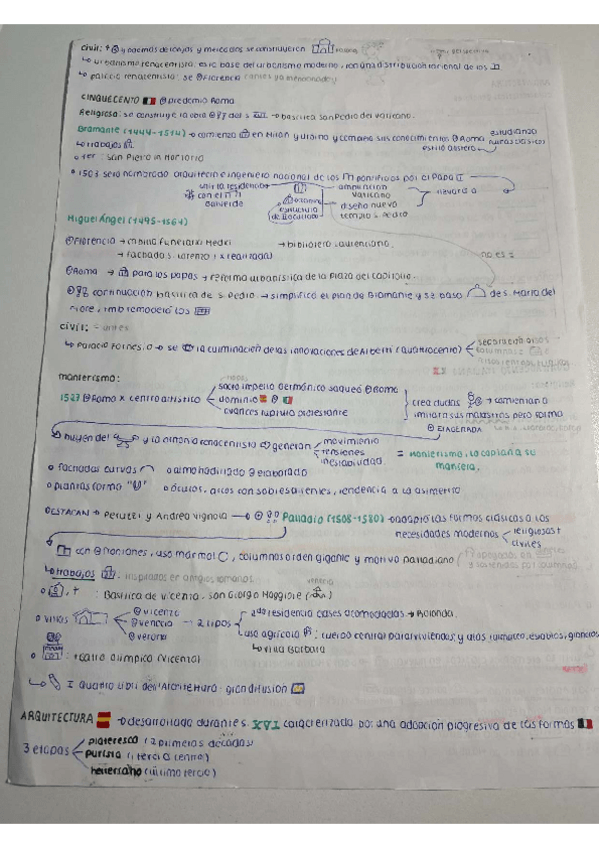 civil: + y poemas de concejos y mercados se construyeron
↳ urbanismo renacentista: es la base del urbanismo moderno, con una distribución racional de los
↳ palacio renacentista: se Florencia (antes ya mencionado)
CINQUECENTO predomio Roma
Religiosa: se construye la obra del s. XVI → basílica san Pedro del Vaticano.
Bramante (1444-1514) → comienza en Milán y Urbino y comparte sus conocimientos Roma estudiando ruinas clásicas
↳ trabajos: estilo
1er: San Pietro in Montorio
1503 será nombrado arquitecto e ingeniero nacional de los pontificios por el Papa II
unir la residencia con el Belvedere
ampliación Vaticano
diseño nuevo templo S. Pedro
llevará a
Miguel Ángel (1495-1564)
Florencia → capilla funeraria Medici → biblioteca laurenciana.
→ fachada S. Lorenzo (x realizada)
no es =
Roma → para los papas → reforma urbanística de la Plaza del Capitolio.
continuación basílica de S. Pedro → simplificó el plan de Bramante y se basó de S. María del
Fiore, tmb remodeló los
civil: = antes
↳ Palacio Farnesio → se la culminación de las innovaciones de Alberti (Quattrocento)
separación pisos
columnas =
manierismo:
1527 Roma x centro artístico
sacro imperio Germánico saqueó Roma
dominio
avances ruptura protestante
crea dudas → comienzan a imitar a sus maestros pero forma EXAGERADA
↳ huyen del y la armonía renacentista generan
movimiento
tensiones
inestabilidad
= manierismo, la copian a su manera.
fachadas curvas
almohadillado elaborado
plantas forma "U"
óculos, arcos con sobresalientes, tendencia a la asimetría
DESTACAN → Peruzzi y Andrea Vignola → Palladio (1508-1580) → adaptó las formas clásicas a las
necesidades modernas
religiosas +
civiles
con frontones, uso mármol, columnas orden gigante y motivo palladiano
↳ trabajos : inspirados en antiguos romanos
, + : Basílica de Vicenza, San Giorgio Maggiore (Venecia)
villas
Vicenza
Venecia
Verona
→ 2 tipos
2da residencia clases acomodadas → Rotonda.
uso agrícola : cuerpo central para viviendas y alas talleres, establos, graneros
↳ villa Barbara
: teatro olímpico (Vicenza)
↳ I Quattro Libri dell'Architettura: gran difusión
ARQUITECTURA → desarrollada durante s. XVI caracterizada por una adopción progresiva de las formas
3 etapas
plateresco (2 primeras décadas)
purista (tercio centro)
herreriano (último tercio)